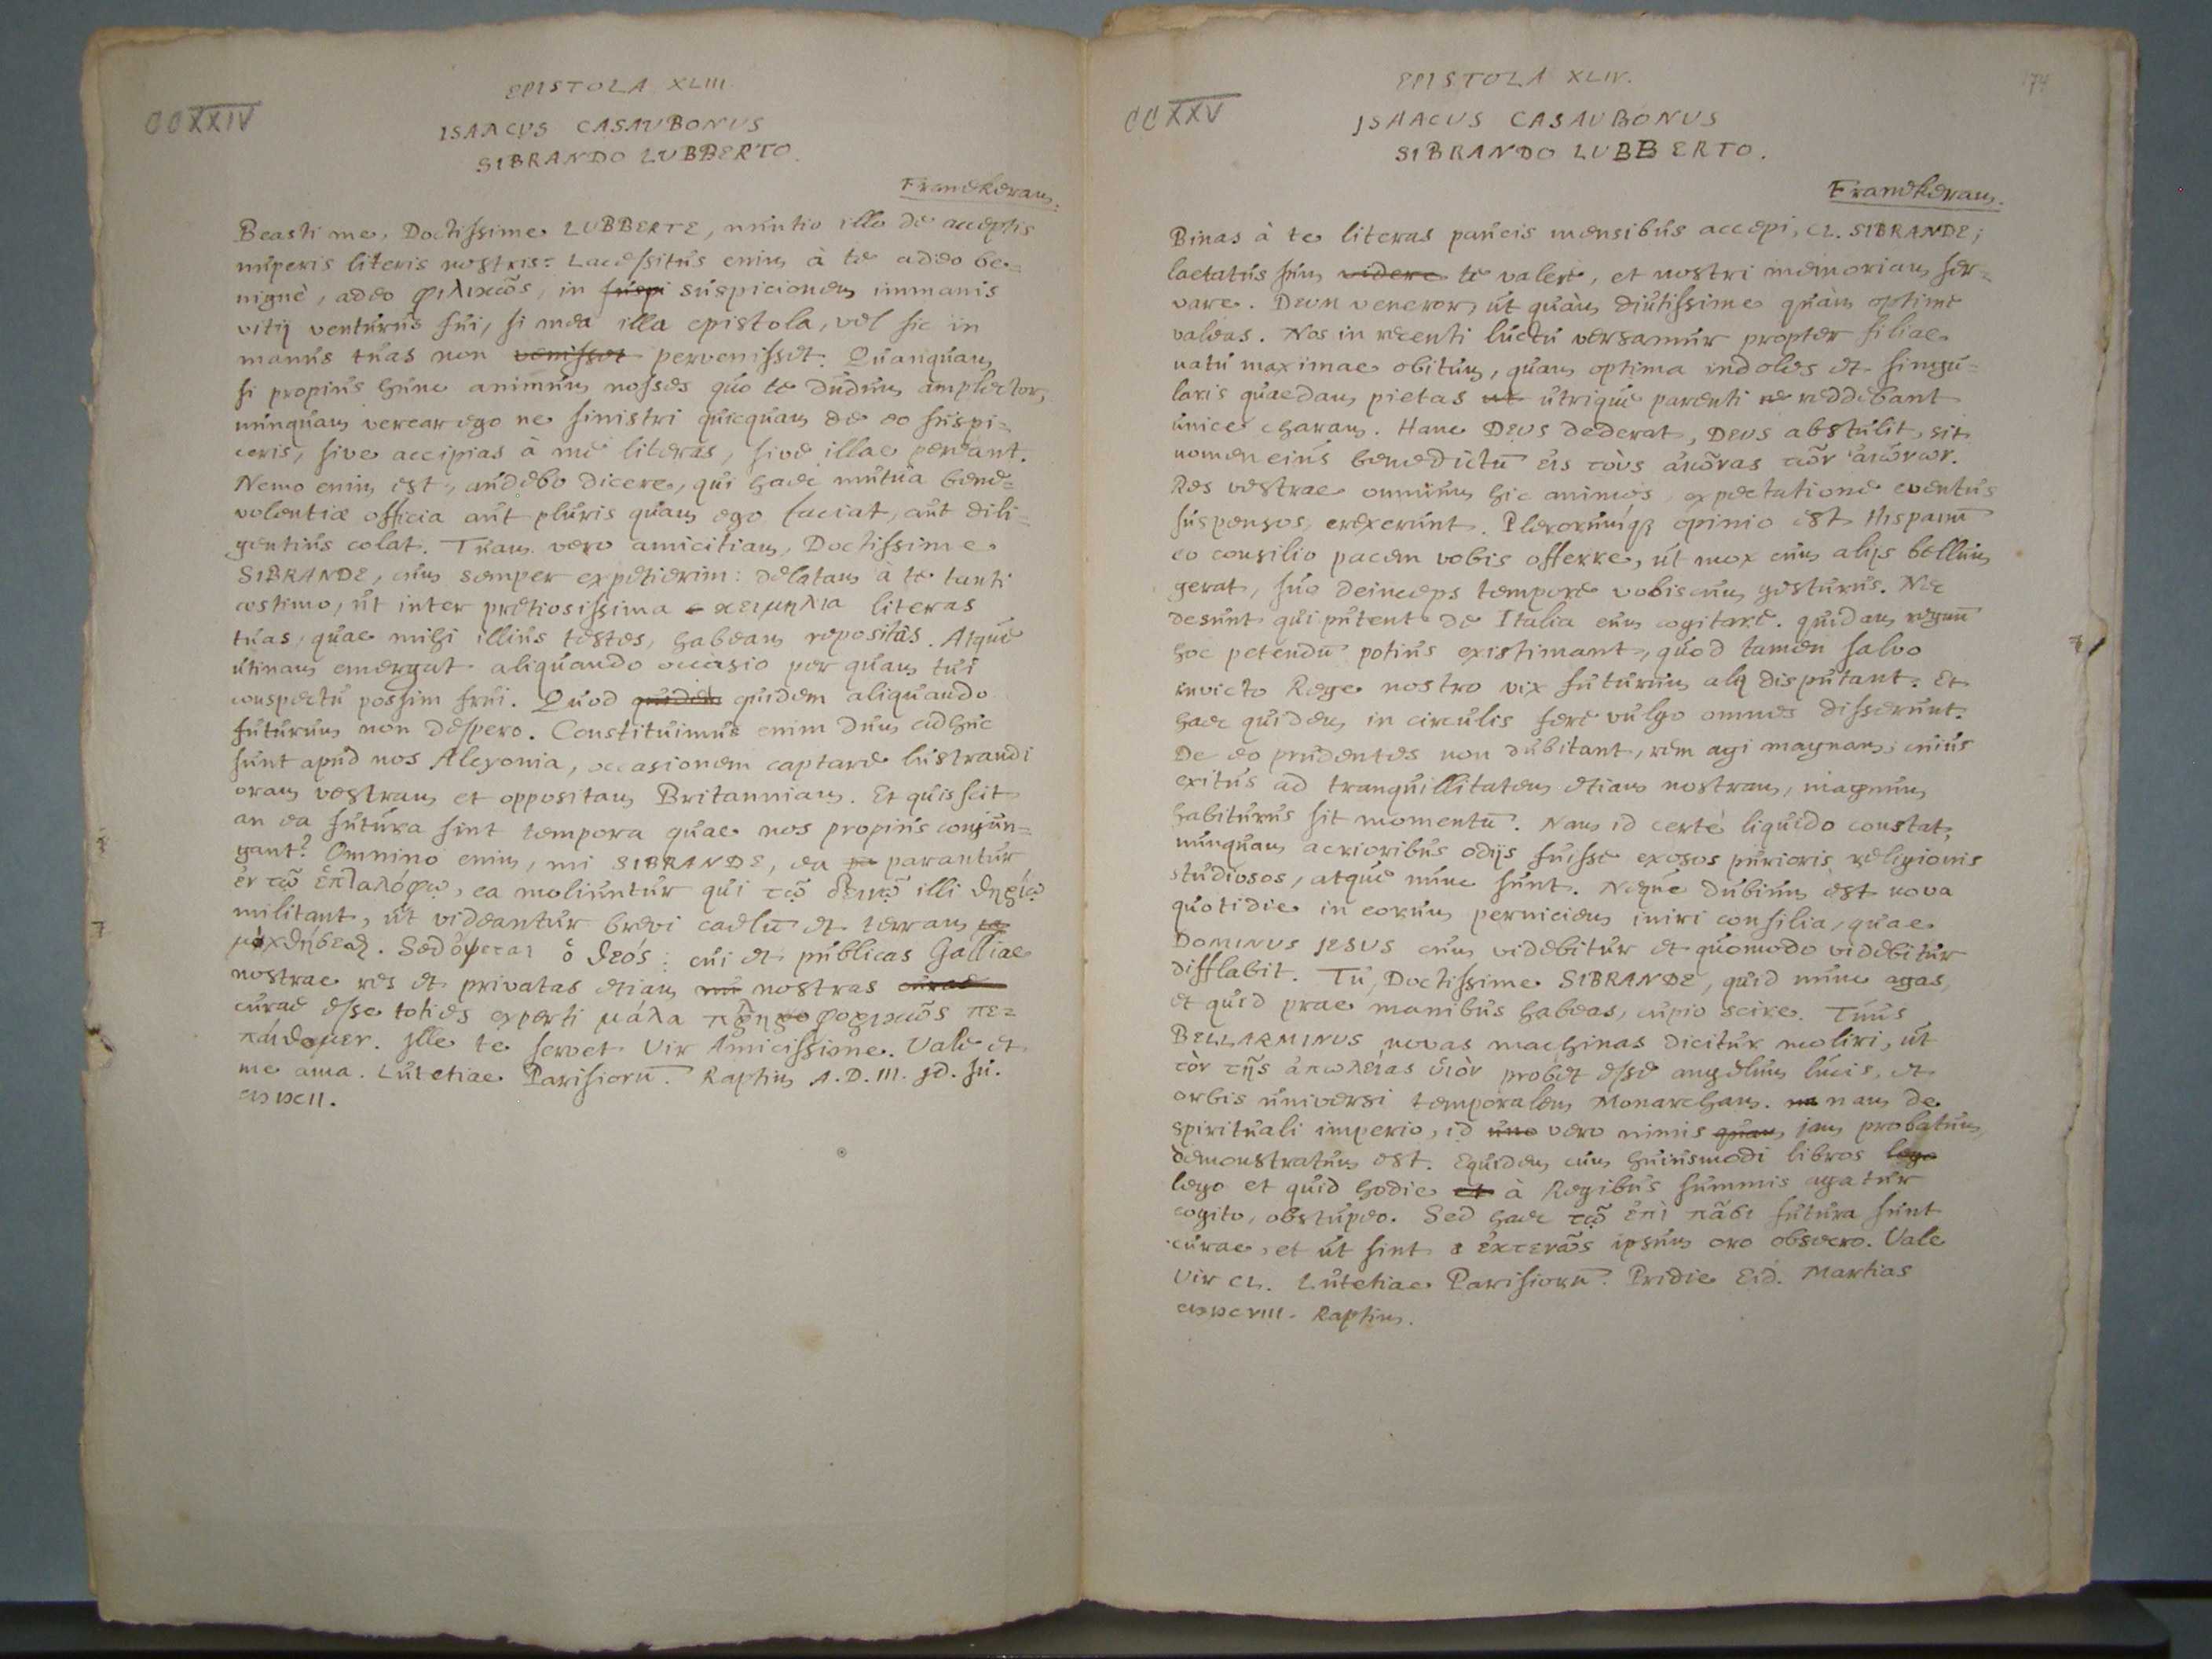 EPISTOLA XLIII.
CCXXIV
ISAACUS CASAUBONUS
SIBRANDO LUBBERTO.
Franekeram.
Beasti me, Doctissime LUBBERTE, nuntio illo de acceptis
nuperis literis nostris: Lacessitus enim à te adeo be=
nignè, adeo φιλικῶς, in suspi suspicionem immanis
vitij venturus fui, si mea illa epistola, vel sic in
manus tuas non venisset pervenisset. Quanquam
si propius hunc animum nosses quo te dudum amplector,
nunquam verear ego ne sinistri quicquam de eo suspi=
ceris, sive accipias à me literas, sive illae pereant.
Nemo enim est, audebo dicere, qui haec mutua bene=
volentiae officia aut pluris quam ego faciat, aut dili=
gentius colat. Tuam vero amicitiam, Doctissime
SIBRANDE, cum semper expetierim: delatam à te tanti
aestimo, ut inter pretiosissima κειμηλια literas
tuas, quae mihi illius testes, habeam repositas. Atque
utinam emergat aliquando occasio per quam tui
conspectu possim frui. Quod quidem quidem aliquando
futurum non despero. Constituimus enim dum adhuc
sunt apud nos Alcyonia, occasionem captare lustrandi
oram vestram et oppositam Britanniam. Et quis scit
an ea futura sint tempora quae nos propius conjun=
gant? Omnino enim, mi SIBRANDE, ea pa parantur
ἐν τῷ ἑπταλόφῳ, ea moliuntur qui τῷ δεινῷ illi θηρίῳ
militant, ut videantur brevi caelū et terram
. Sed ὄψεται ὁ θεός: cui et publicas Galliae
nostrae res et privatas etiam nostras curae
curae esse toties experti μάλα πε=
. Ille te servet Vir Amicissime. Vale et
me ama. Lutetiae Parisiorū. Raptim A.D. III. Id. Iu.
CIↃ IↃCII.
EPISTOLA XLIV.
174
CCXXV
ISAACUS CASAUBONUS
SIBRANDO LUBBERTO.
Franekeram.
Binas à te literas paucis mensibus accepi, CL. SIBRANDE;
laetatus sum videre te valere, et nostri memoriam ser=
vare. Deum veneror, ut quàm diutissime quàm optime
valeas. Nos in recenti luctu versamur propter filiae
natu maximae obitum, quam optima indoles et singu=
laris quaedam pietas ut utrique parenti re reddebant
unice charam. Hanc DEUS dederat, DEUS abstulit, sit
nomen eius benedictū εἰς τοὺς αἰῶνας τῶν αἰώνων.
Res vestrae omnium hic animos, expectatione eventus
suspensos, erexerunt. Plerorumq; opinio est Hispanū
eo consilio pacem vobis offerre, ut mox cum alijs bellum
gerat, suo deinceps tempore vobiscum gesturus. Nec
desunt qui putent de Italia eum cogitare. quidam regnū
hoc petendū potius existimant, quod tamen salvo
invicto Rege nostro vix futurum alij disputant. Et
haec quidem in circulis fere vulgo omnes disserunt.
De eo prudentes non dubitant, rem agi magnam; cuius
exitus ad tranquillitatem etiam nostram, magnum
habiturus sit momentū. Nam id certè liquido constat,
nunquam acrioribus odijs fuisse exosos purioris religionis
studiosos, atque nunc sunt. Neque dubium est nova
quotidie in eorum perniciem iniri consilia, quae
DOMINUS JESUS cum videbitur et quomodo videbitur
difflabit. Tu, Doctissime SIBRANDE, quid nunc agas,
et quid prae manibus habeas, cupio scire. Tuus
BELLARMINUS novas machinas dicitur moliri, ut
τὸν τῆς ἀπωλείας ὑιὸν probet esse angelum lucis, et
orbis universi temporalem Monarcham. na nam de
spirituali imperio, id uno vero nimis quam jam probatum,
demonstratum est. Equidem cum huiusmodi libros lego
lego et quid hodie et à Regibus summis agatur
cogito, obstupeo. Sed haec τῷ ἐπὶ πᾶσι futura sunt
curae, et ut sint ἐκτενῶς ipsum oro obsecro. Vale
Vir CL. Lutetiae Parisiorū. Pridie Eid. Martias
CIↃ IↃCVIII. Raptim.